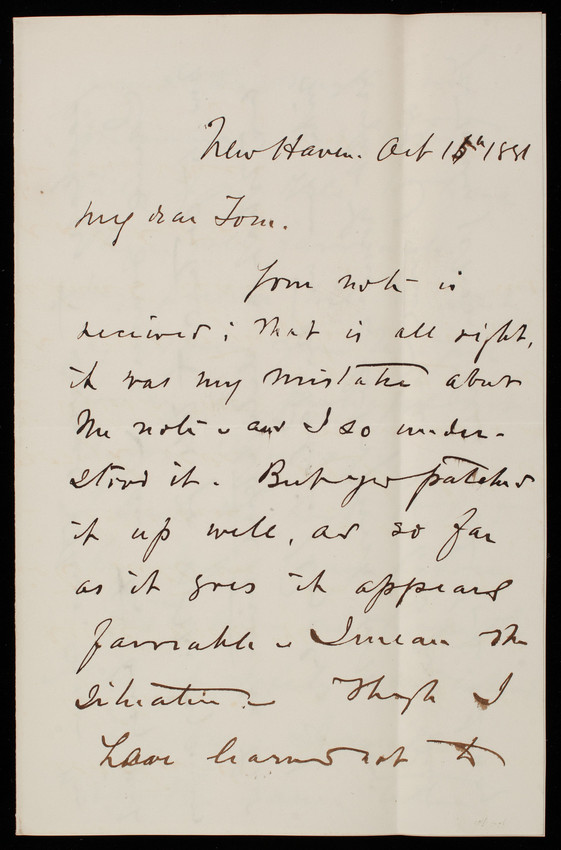 New Haven. Oct 15th 1881
My dear Tom.
Your note is
received; that is all right,
it was my mistake about
the note - and I so under-
stood it. But you patched
it up well, and so far
as it goes it appears
favorable - I mean the
situation. - Though I
have learned not to